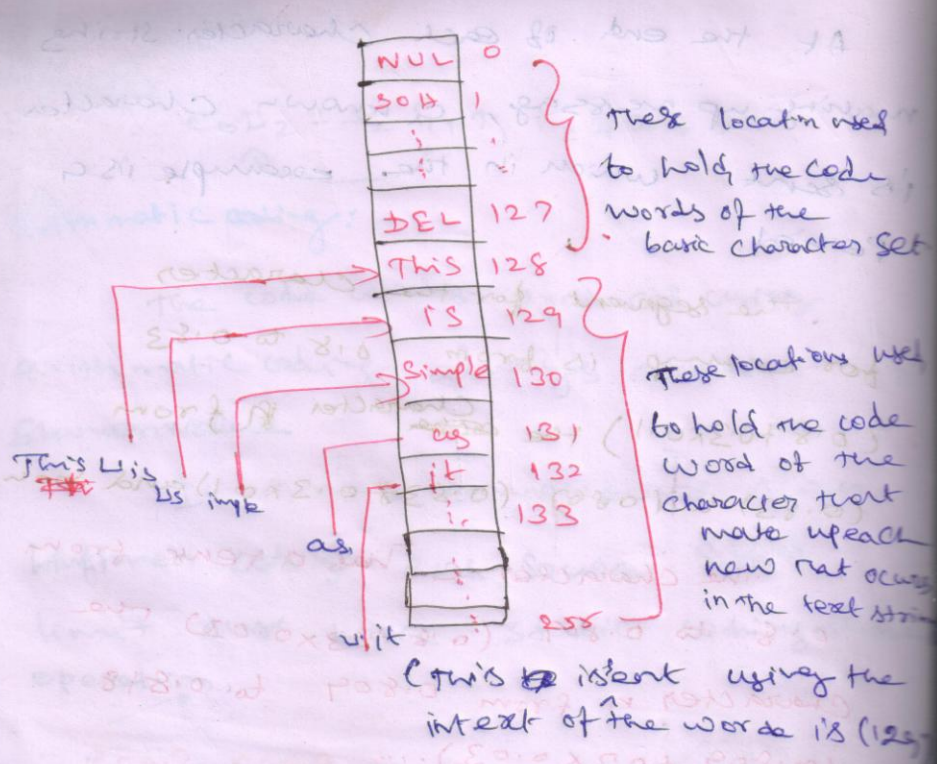 NUL 0
SOH 1
DEL 127
This 128
is 129
Simple 130
as 131
it 132
133
255
These locatin used
to hold the code
words of the
basic character set
These locations used
to hold the code
word of the
character that
make up each
new that ocurs
in the text strin
This ␣ is
␣s imple
as
␣ it
(This is sent using the
intext of the words is (129